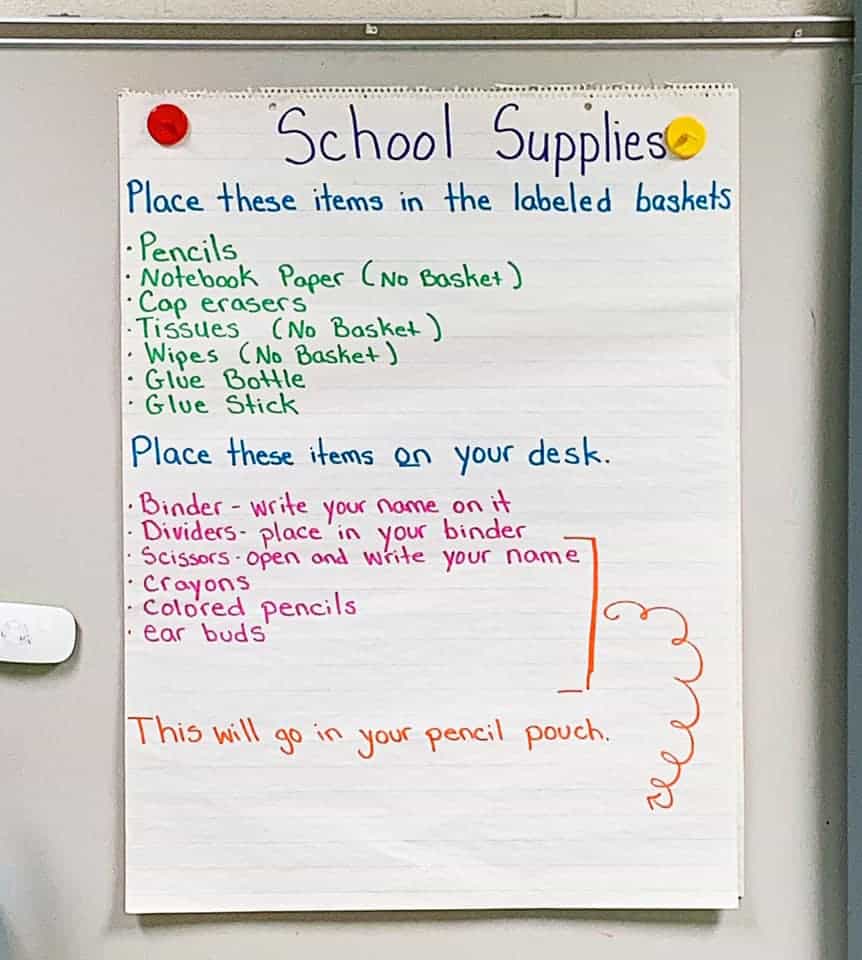 School Supplies
Place these items in the labeled baskets
· Pencils
· Notebook Paper (No Basket)
· Cap erasers
· Tissues (No Basket)
· Wipes (No Basket)
· Glue Bottle
· Glue Stick
Place these items on your desk.
· Binder - write your name on it
· Dividers - place in your binder
· Scissors - open and write your name
· crayons
· colored pencils
· ear buds
This will go in your pencil pouch.